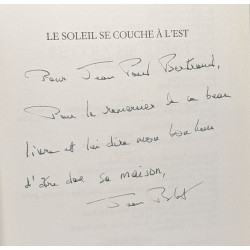 LE SOLEIL SE COUCHE À L'EST
Pour Jean Paul Bertrand,
Pour le remercier de ce beau
livre et lui dire mon bonheur
d'être dans sa maison,
Jean Blot